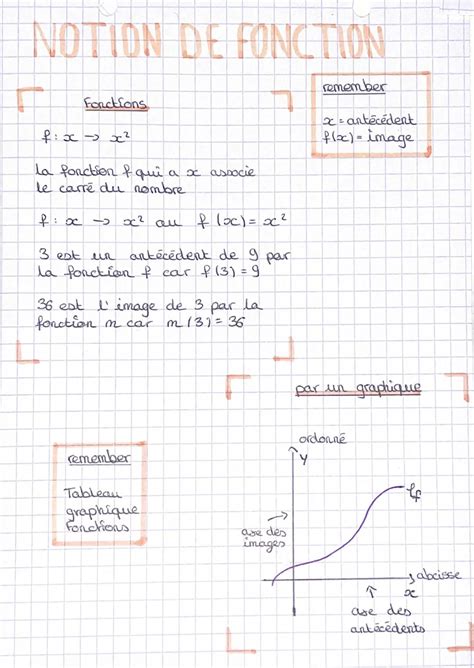 NOTION DE FONCTION
remember
x = antécédent
f(x) = image
Fonctions
f : x → x²
La fonction f qui a x associe
le carré du nombre
f : x → x² ou f (x) = x²
3 est un antécédent de 9 par
la fonction f car f(3) = 9
36 est l'image de 3 par la
fonction m car m(3) = 36
par un graphique
remember
Tableau
graphique
Fonctions
ordonné
y
axe des
images
abcisse
x
axe des
antécédents